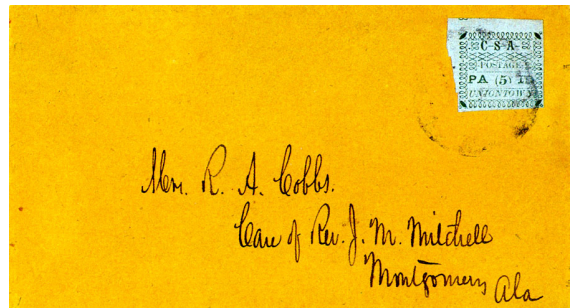 C·S·A·
POSTAGE
PA (5) ID
UNIONTOW
Mrs. R. A. Cobbs.
Care of Rev. J. M. Mitchell
Montgomery
Ala